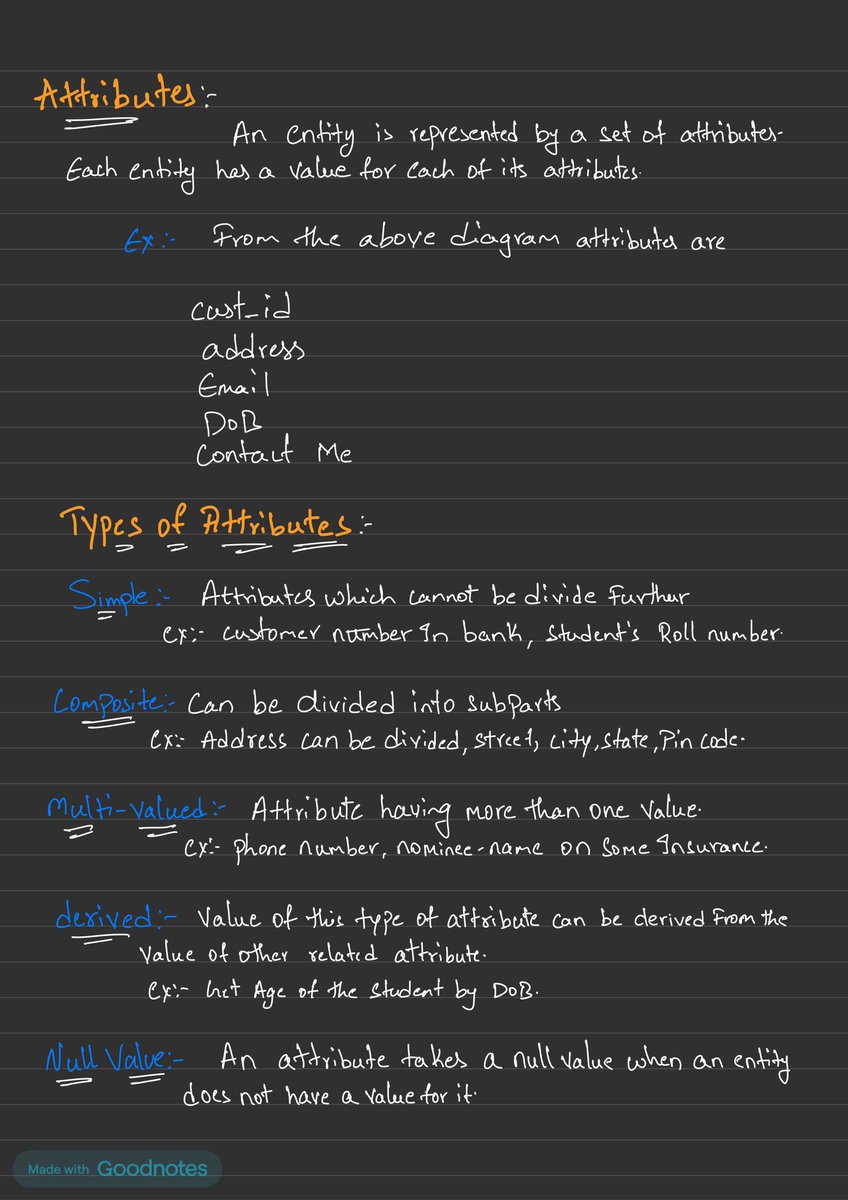 Attributes:-
An entity is represented by a set of attributes.
Each entity has a value for each of its attributes.
Ex:- From the above diagram attributes are
cust_id
address
Email
DoB
Contact Me
Types of Attributes:-
Simple:- Attributes which cannot be divide further
ex:- customer number In bank, student's Roll number.
Composite:- Can be divided into subparts
ex:- Address can be divided, street, city, state, Pin code.
Multi-valued:- Attribute having more than one value.
ex:- phone number, nominee-name on some Insurance.
derived:- Value of this type of attribute can be derived from the
value of other related attribute.
ex:- Get Age of the student by DoB.
Null Value:- An attribute takes a null value when an entity
does not have a value for it.
Made with Goodnotes